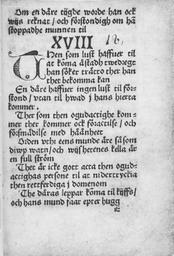 Om en dåre tijgde worde han ock
wijs reknat / och förstondigh om hã
stoppadhe munnen til
XVIII
Den som lust haffuer til
at kõma åstadh twedregt
han söker trätto ther han
thet bekomma kan
En dåre haffuer ingen lust til för-
stond / vtan til hwad j hans hierta
kommer.
Ther som then ogudactighe kom-
mer ther kommer ock föractilse / och
försmädilse med håånhet
Orden vthi eens munde äre så som
diwp watn / och wijshetenes kella är
en full ström
Thet är icke gott acta then ogud-
actighas persone til at nidertryckia
then rettferdiga j domenom
The dåras leppar kõma til kijff /
och hans mund faar epter hugg